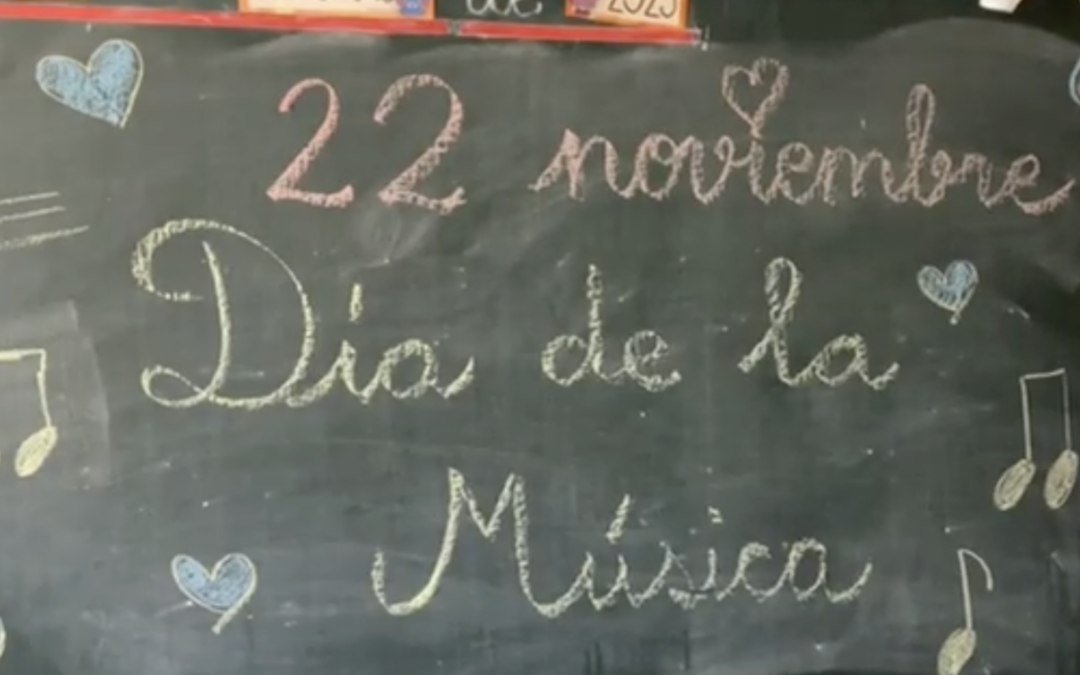 de 2025
22 noviembre
Día de la
Música